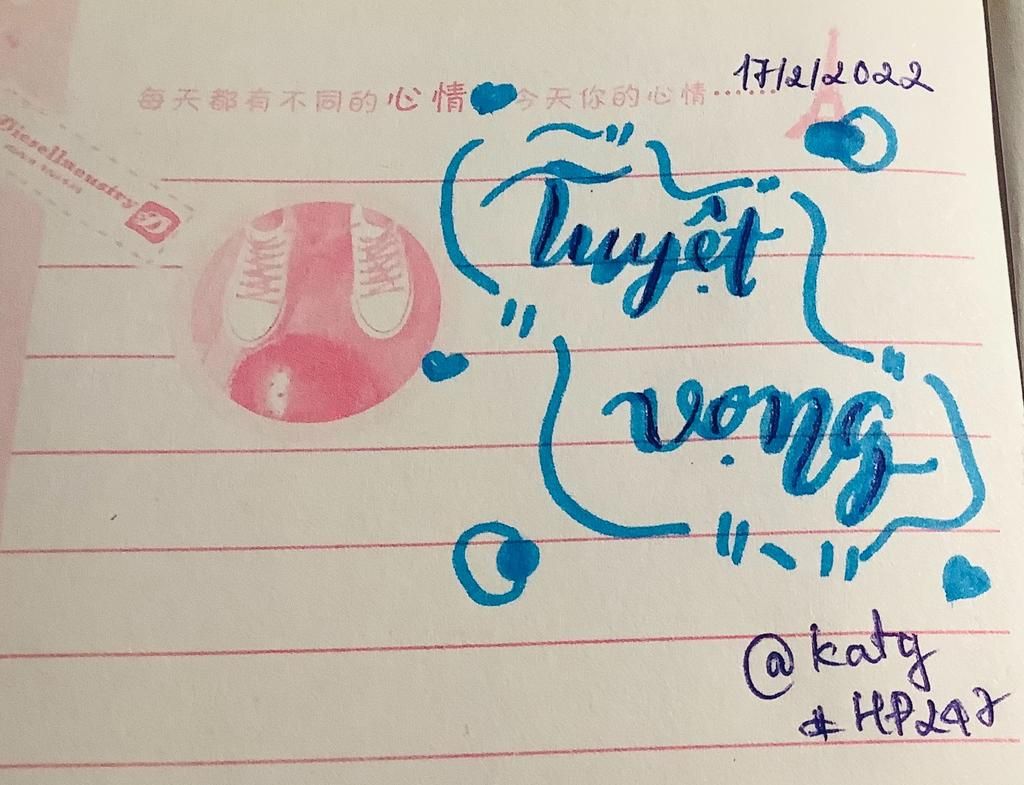 17/2/2022
每天都有不同的心情 今天你的心情……
Tuyệt
vọng
@katy
#HP247